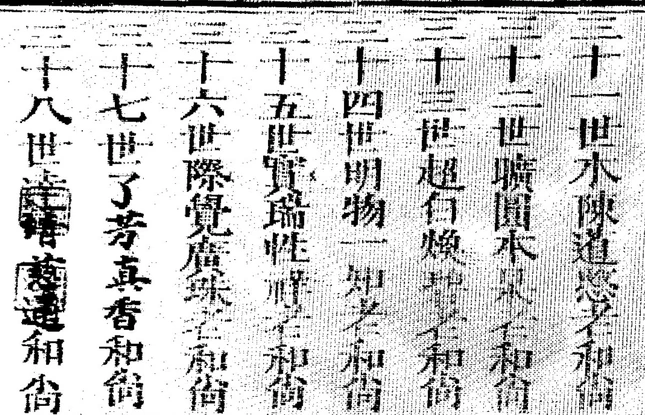 三十一世木陳道忞老和尚
三十二世曠圓本果老和尚
三十三世超白煥老和尚
三十四世明物一知老和尚
三十五世實瑞性祥老和尚
三十六世際覺廣珠老和尚
三十七世了芳真香和尚
三十八世達慈和尚